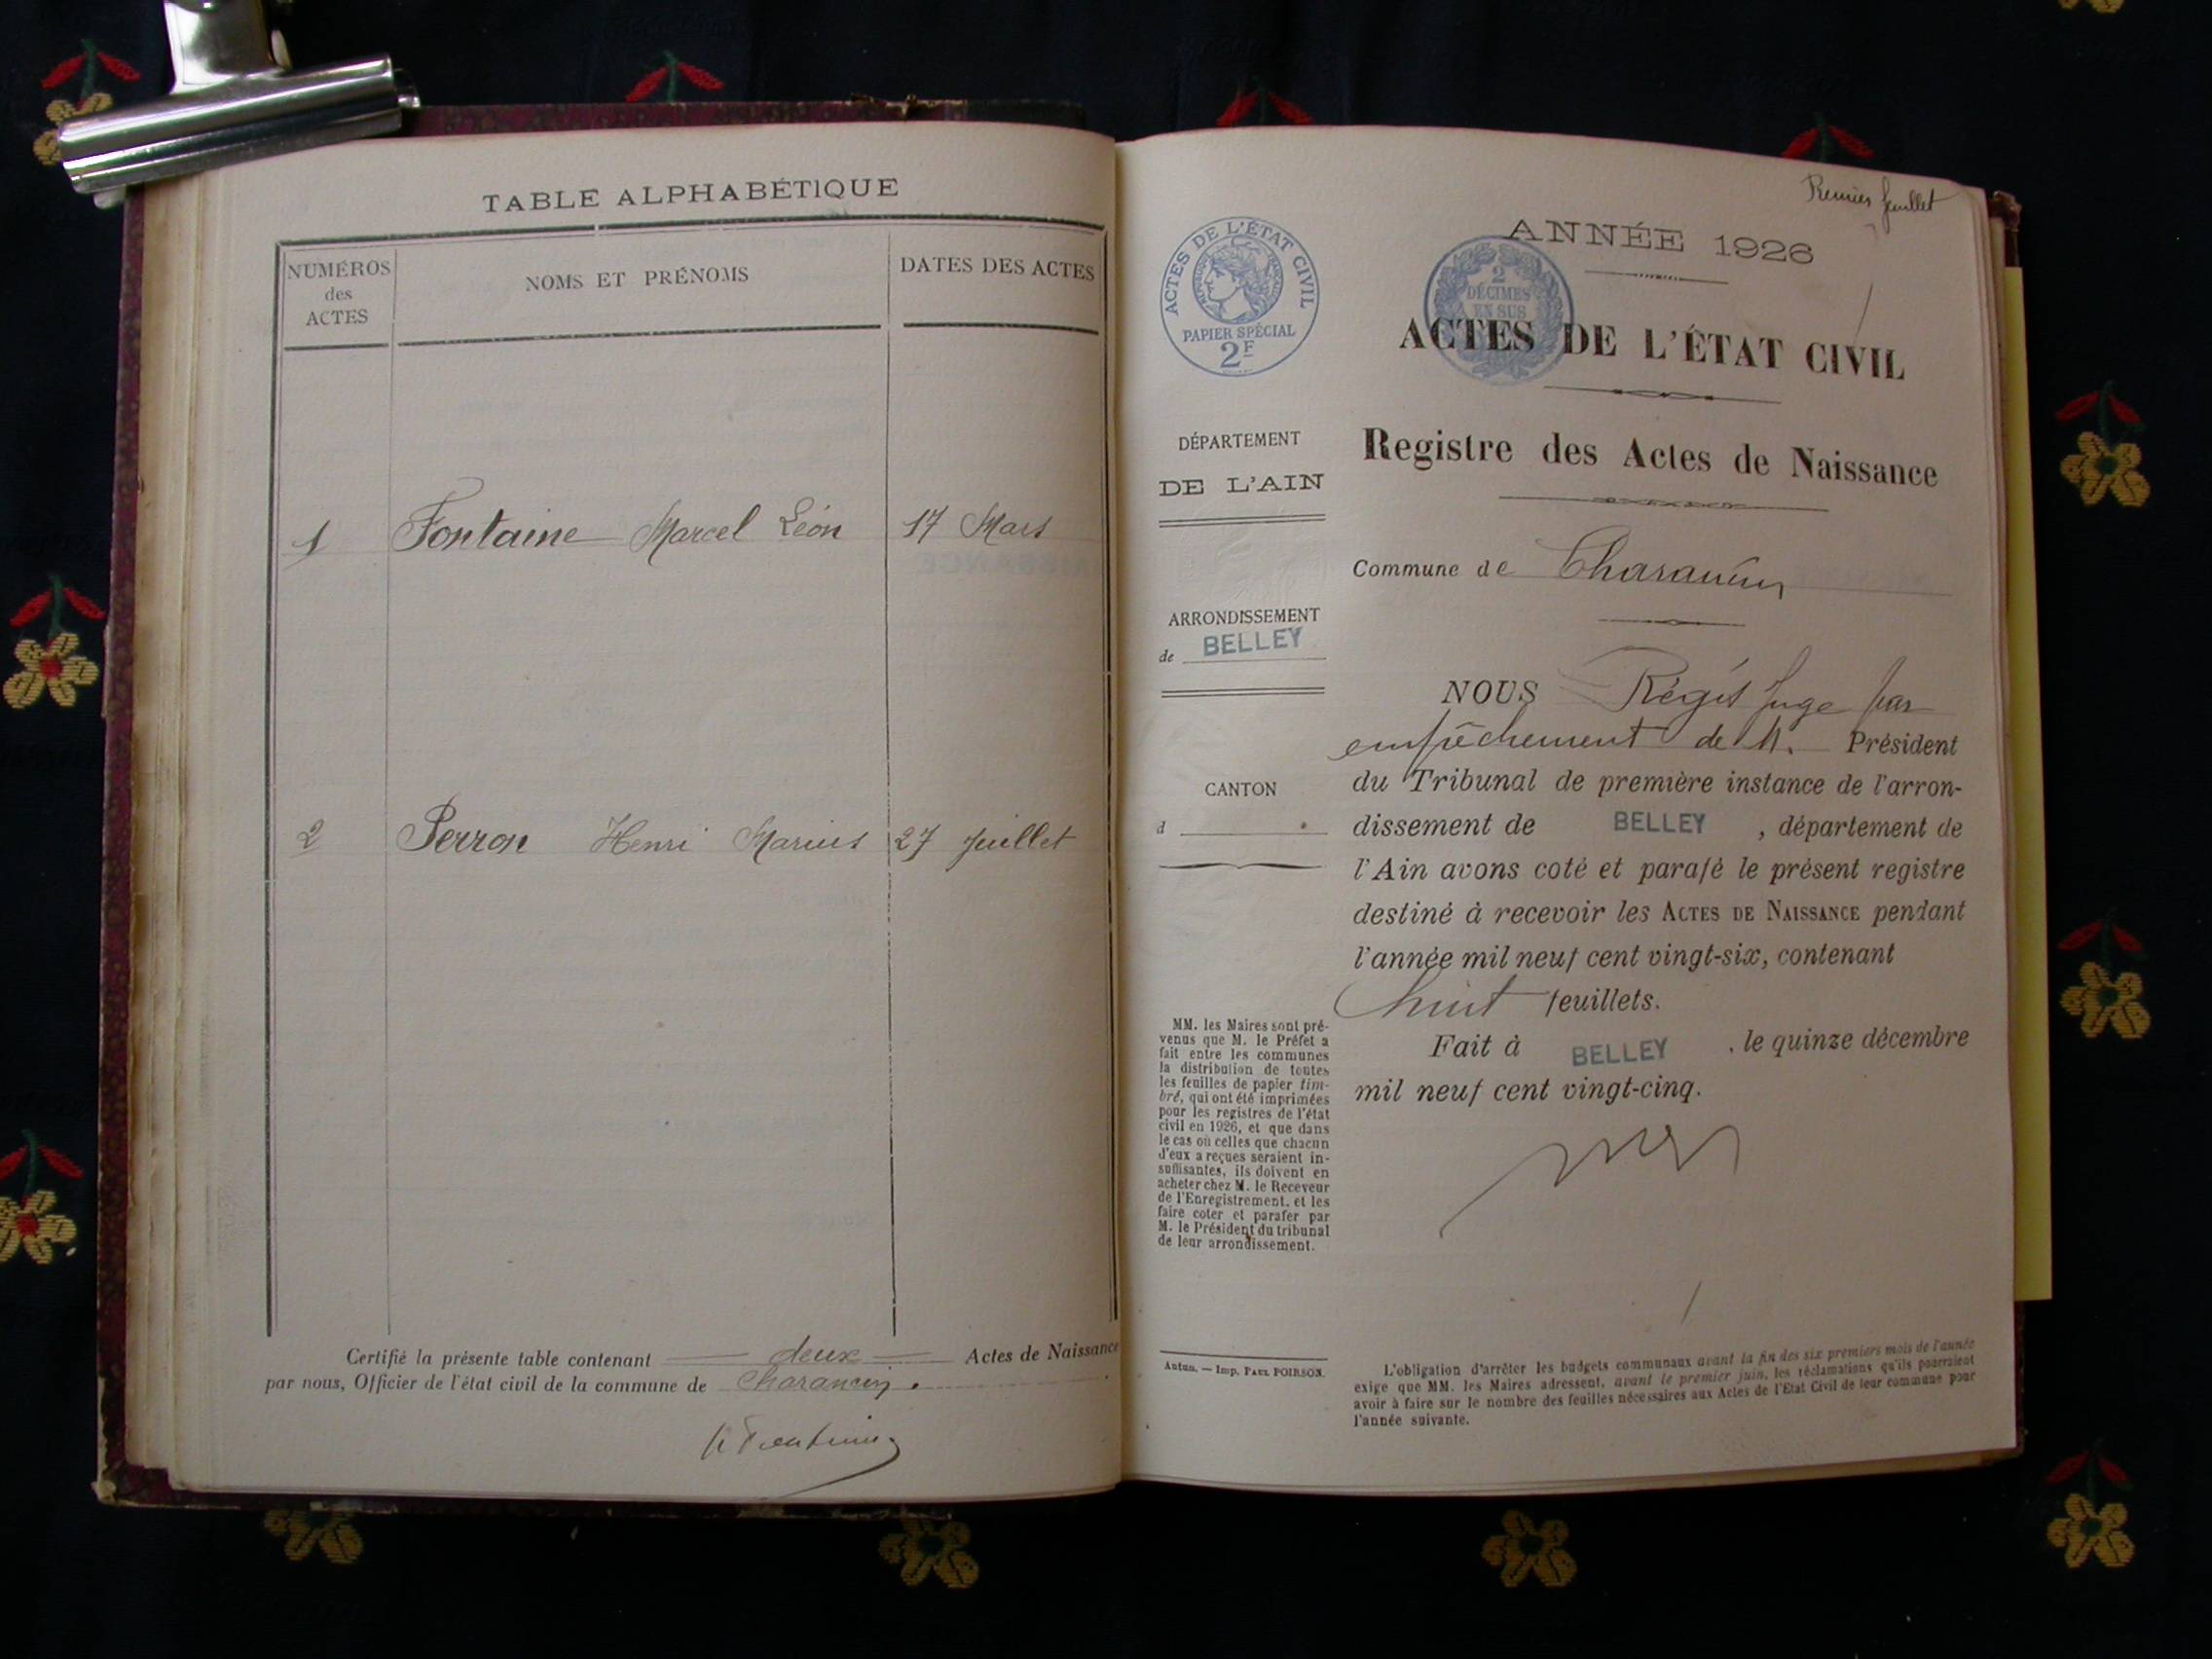 TABLE ALPHABÉTIQUE
NUMÉROS
des
ACTES
NOMS ET PRÉNOMS
DATES DES ACTES
1 Fontaine Marcel Léon 17 Mars
2 Perron Henri Marius 27 Juillet
Certifié la présente table contenant deux Actes de Naissance
par nous, Officier de l'état civil de la commune de Charancin.
Premier feuillet
ACTES DE L'ÉTAT CIVIL
PAPIER SPÉCIAL
2F
2
DÉCIMES
EN SUS
ANNÉE 1926
ACTES DE L'ÉTAT CIVIL
Registre des Actes de Naissance
DÉPARTEMENT
DE L'AIN
ARRONDISSEMENT
de BELLEY
CANTON
d
MM. les Maires sont pré-
venus que M. le Préfet a
fait entre les communes
la distribution de toutes
les feuilles de papier tim-
bré, qui ont été imprimées
pour les registres de l'état
civil en 1926, et que dans
le cas où celles que chacun
d'eux a reçues seraient in-
suffisantes, ils doivent en
acheter chez M. le Receveur
de l'Enregistrement, et les
faire coter et parafer par
M. le Président du tribunal
de leur arrondissement.
Autun. — Imp. PAUL POIRSON.
Commune de Charancin
NOUS Régis Juge par
empêchement de M. Président
du Tribunal de première instance de l'arron-
dissement de BELLEY, département de
l'Ain avons coté et parafé le présent registre
destiné à recevoir les ACTES DE NAISSANCE pendant
l'année mil neuf cent vingt-six, contenant
huit feuillets.
Fait à BELLEY, le quinze décembre
mil neuf cent vingt-cinq.
L'obligation d'arrêter les budgets communaux avant la fin des six premiers mois de l'année
exige que MM. les Maires adressent, avant le premier juin, les réclamations qu'ils pourraient
avoir à faire sur le nombre des feuilles nécessaires aux Actes de l'Etat Civil de leur commune pour
l'année suivante.